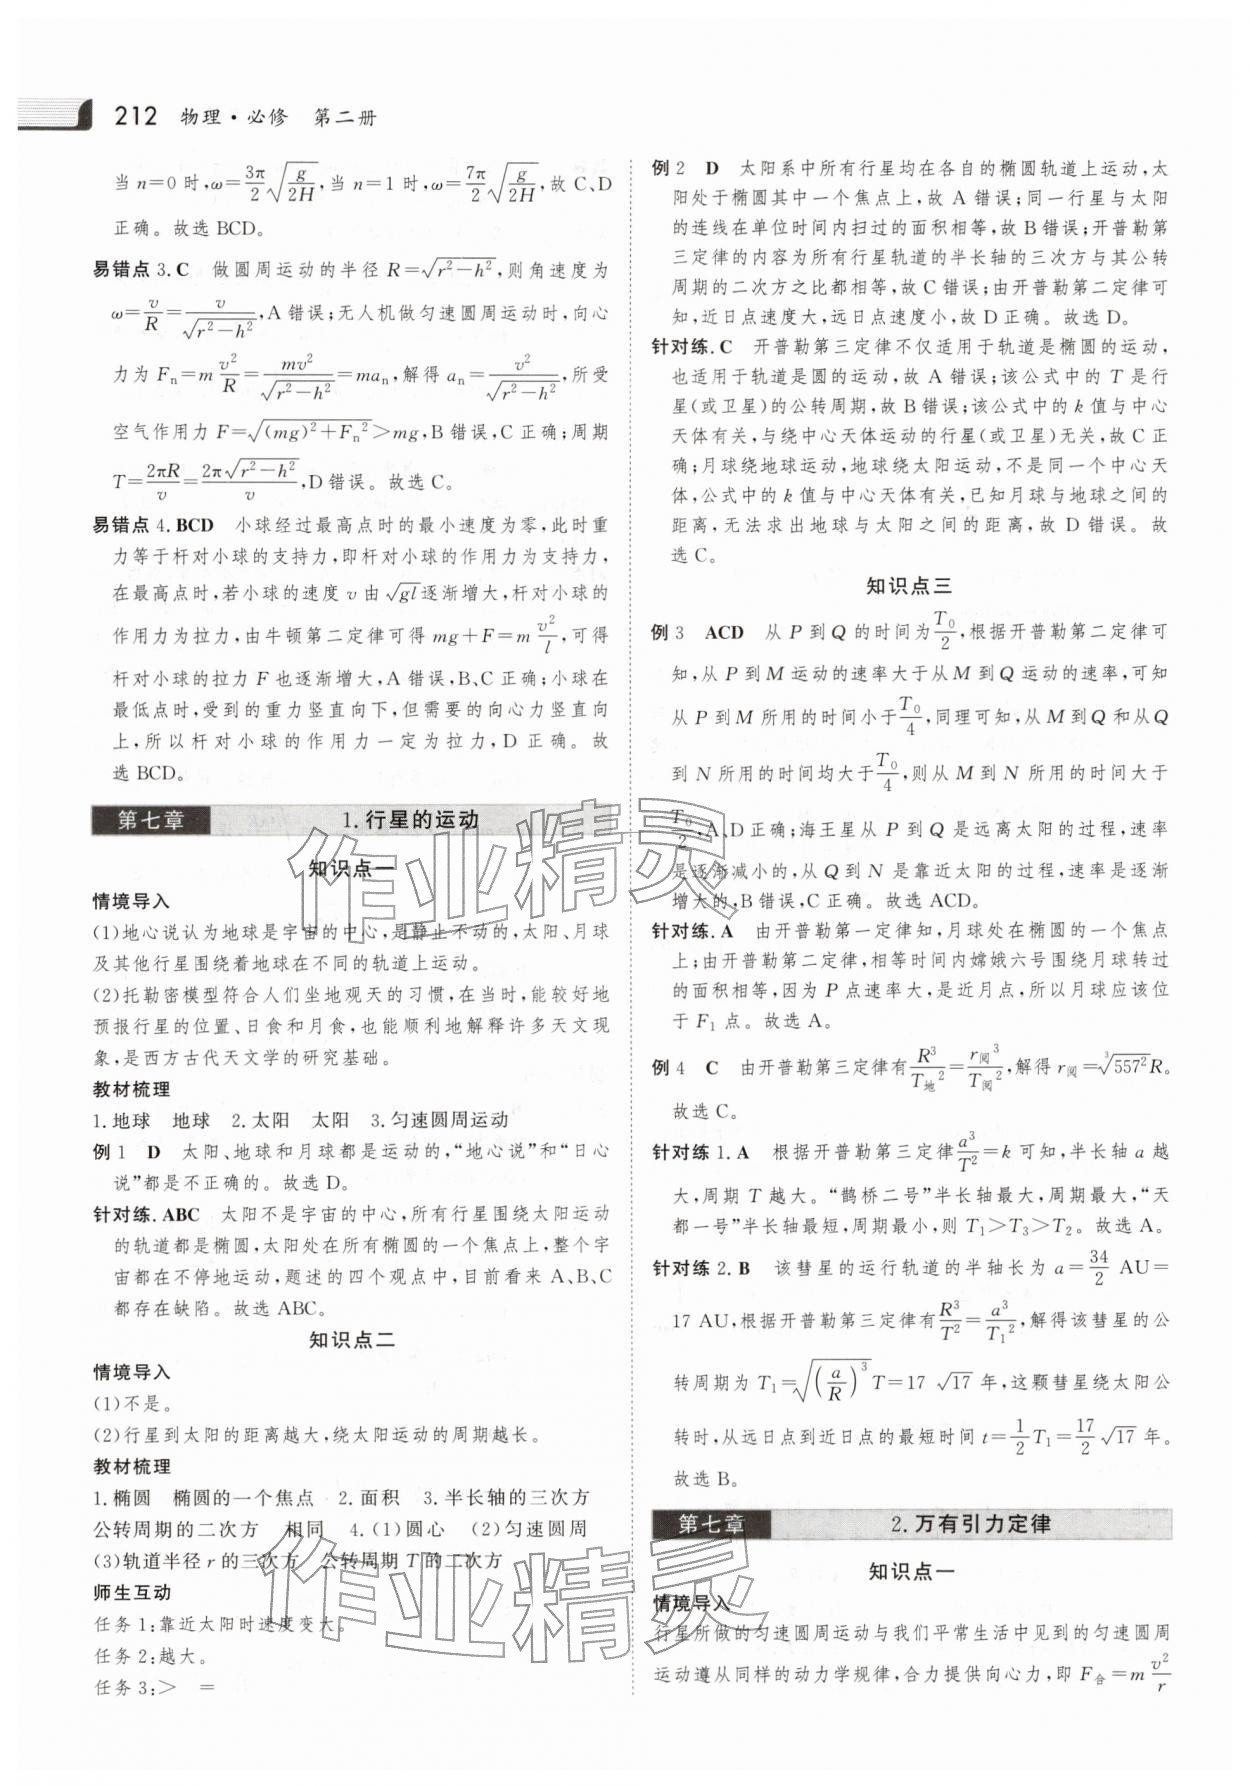 212 物理·必修 第二册
当 n=0 时,ω=3π/2 √(g/2H),当 n=1 时,ω=7π/2 √(g/2H),故 C、D
正确。故选 BCD。
易错点 3.C 做圆周运动的半径 R=√(r²-h²),则角速度为
ω=v/R=v/√(r²-h²),A 错误;无人机做匀速圆周运动时,向心
力为 Fₙ=m v²/R=mv²/√(r²-h²)=maₙ,解得 aₙ=v²/√(r²-h²),所受
空气作用力 F=√((mg)²+Fₙ²)>mg,B 错误,C 正确;周期
T=2πR/v=2π√(r²-h²)/v,D 错误。故选 C。
易错点 4.BCD 小球经过最高点时的最小速度为零,此时重
力等于杆对小球的支持力,即杆对小球的作用力为支持力,
在最高点时,若小球的速度 v 由 √(gl) 逐渐增大,杆对小球的
作用力为拉力,由牛顿第二定律可得 mg+F=m v²/l,可得
杆对小球的拉力 F 也逐渐增大,A 错误,B、C 正确;小球在
最低点时,受到的重力竖直向下,但需要的向心力竖直向
上,所以杆对小球的作用力一定为拉力,D 正确。故
选 BCD。
第七章 1.行星的运动
知识点一
情境导入
(1)地心说认为地球是宇宙的中心,是静止不动的,太阳、月球
及其他行星围绕着地球在不同的轨道上运动。
(2)托勒密模型符合人们坐地观天的习惯,在当时,能较好地
预报行星的位置、日食和月食,也能顺利地解释许多天文现
象,是西方古代天文学的研究基础。
教材梳理
1.地球 地球 2.太阳 太阳 3.匀速圆周运动
例 1 D 太阳、地球和月球都是运动的,“地心说”和“日心
说”都是不正确的。故选 D。
针对练.ABC 太阳不是宇宙的中心,所有行星围绕太阳运动
的轨道都是椭圆,太阳处在所有椭圆的一个焦点上,整个宇
宙都在不停地运动,题述的四个观点中,目前看来 A、B、C
都存在缺陷。故选 ABC。
知识点二
情境导入
(1)不是。
(2)行星到太阳的距离越大,绕太阳运动的周期越长。
教材梳理
1.椭圆 椭圆的一个焦点 2.面积 3.半长轴的三次方
公转周期的二次方 相同 4.(1)圆心 (2)匀速圆周
(3)轨道半径 r 的三次方 公转周期 T 的二次方
师生互动
任务 1:靠近太阳时速度变大。
任务 2:越大。
任务 3:> =
例 2 D 太阳系中所有行星均在各自的椭圆轨道上运动,太
阳处于椭圆其中一个焦点上,故 A 错误;同一行星与太阳
的连线在单位时间内扫过的面积相等,故 B 错误;开普勒第
三定律的内容为所有行星轨道的半长轴的三次方与其公转
周期的二次方之比都相等,故 C 错误;由开普勒第二定律可
知,近日点速度大,远日点速度小,故 D 正确。故选 D。
针对练.C 开普勒第三定律不仅适用于轨道是椭圆的运动,
也适用于轨道是圆的运动,故 A 错误;该公式中的 T 是行
星(或卫星)的公转周期,故 B 错误;该公式中的 k 值与中心
天体有关,与绕中心天体运动的行星(或卫星)无关,故 C 正
确;月球绕地球运动,地球绕太阳运动,不是同一个中心天
体,公式中的 k 值与中心天体有关,已知月球与地球之间的
距离,无法求出地球与太阳之间的距离,故 D 错误。故
选 C。
知识点三
例 3 ACD 从 P 到 Q 的时间为 T₀/2,根据开普勒第二定律可
知,从 P 到 M 运动的速率大于从 M 到 Q 运动的速率,可知
从 P 到 M 所用的时间小于 T₀/4,同理可知,从 M 到 Q 和从 Q
到 N 所用的时间均大于 T₀/4,则从 M 到 N 所用的时间大于
T₀/2,A、D 正确;海王星从 P 到 Q 是远离太阳的过程,速率
是逐渐减小的,从 Q 到 N 是靠近太阳的过程,速率是逐渐
增大的,B 错误,C 正确。故选 ACD。
针对练.A 由开普勒第一定律知,月球处在椭圆的一个焦点
上;由开普勒第二定律,相等时间内嫦娥六号围绕月球转过
的面积相等,因为 P 点速率大,是近月点,所以月球应该位
于 F₁ 点。故选 A。
例 4 C 由开普勒第三定律有 R³/T地²=r阋³/T阋²,解得 r阋=∛(557²)R。
故选 C。
针对练 1.A 根据开普勒第三定律 a³/T²=k 可知,半长轴 a 越
大,周期 T 越大。“鹊桥二号”半长轴最大,周期最大,“天
都一号”半长轴最短,周期最小,则 T₁>T₃>T₂。故选 A。
针对练 2.B 该彗星的运行轨道的半轴长为 a=34/2 AU=
17 AU,根据开普勒第三定律有 R³/T²=a³/T₁²,解得该彗星的公
转周期为 T₁=√((a/R)³)T=17√17 年,这颗彗星绕太阳公
转时,从远日点到近日点的最短时间 t=1/2 T₁=17/2 √17 年。
故选 B。
第七章 2.万有引力定律
知识点一
情境导入
行星所做的匀速圆周运动与我们平常生活中见到的匀速圆周
运动遵从同样的动力学规律,合力提供向心力,即 F合=m v²/r
作业精灵
作业精灵